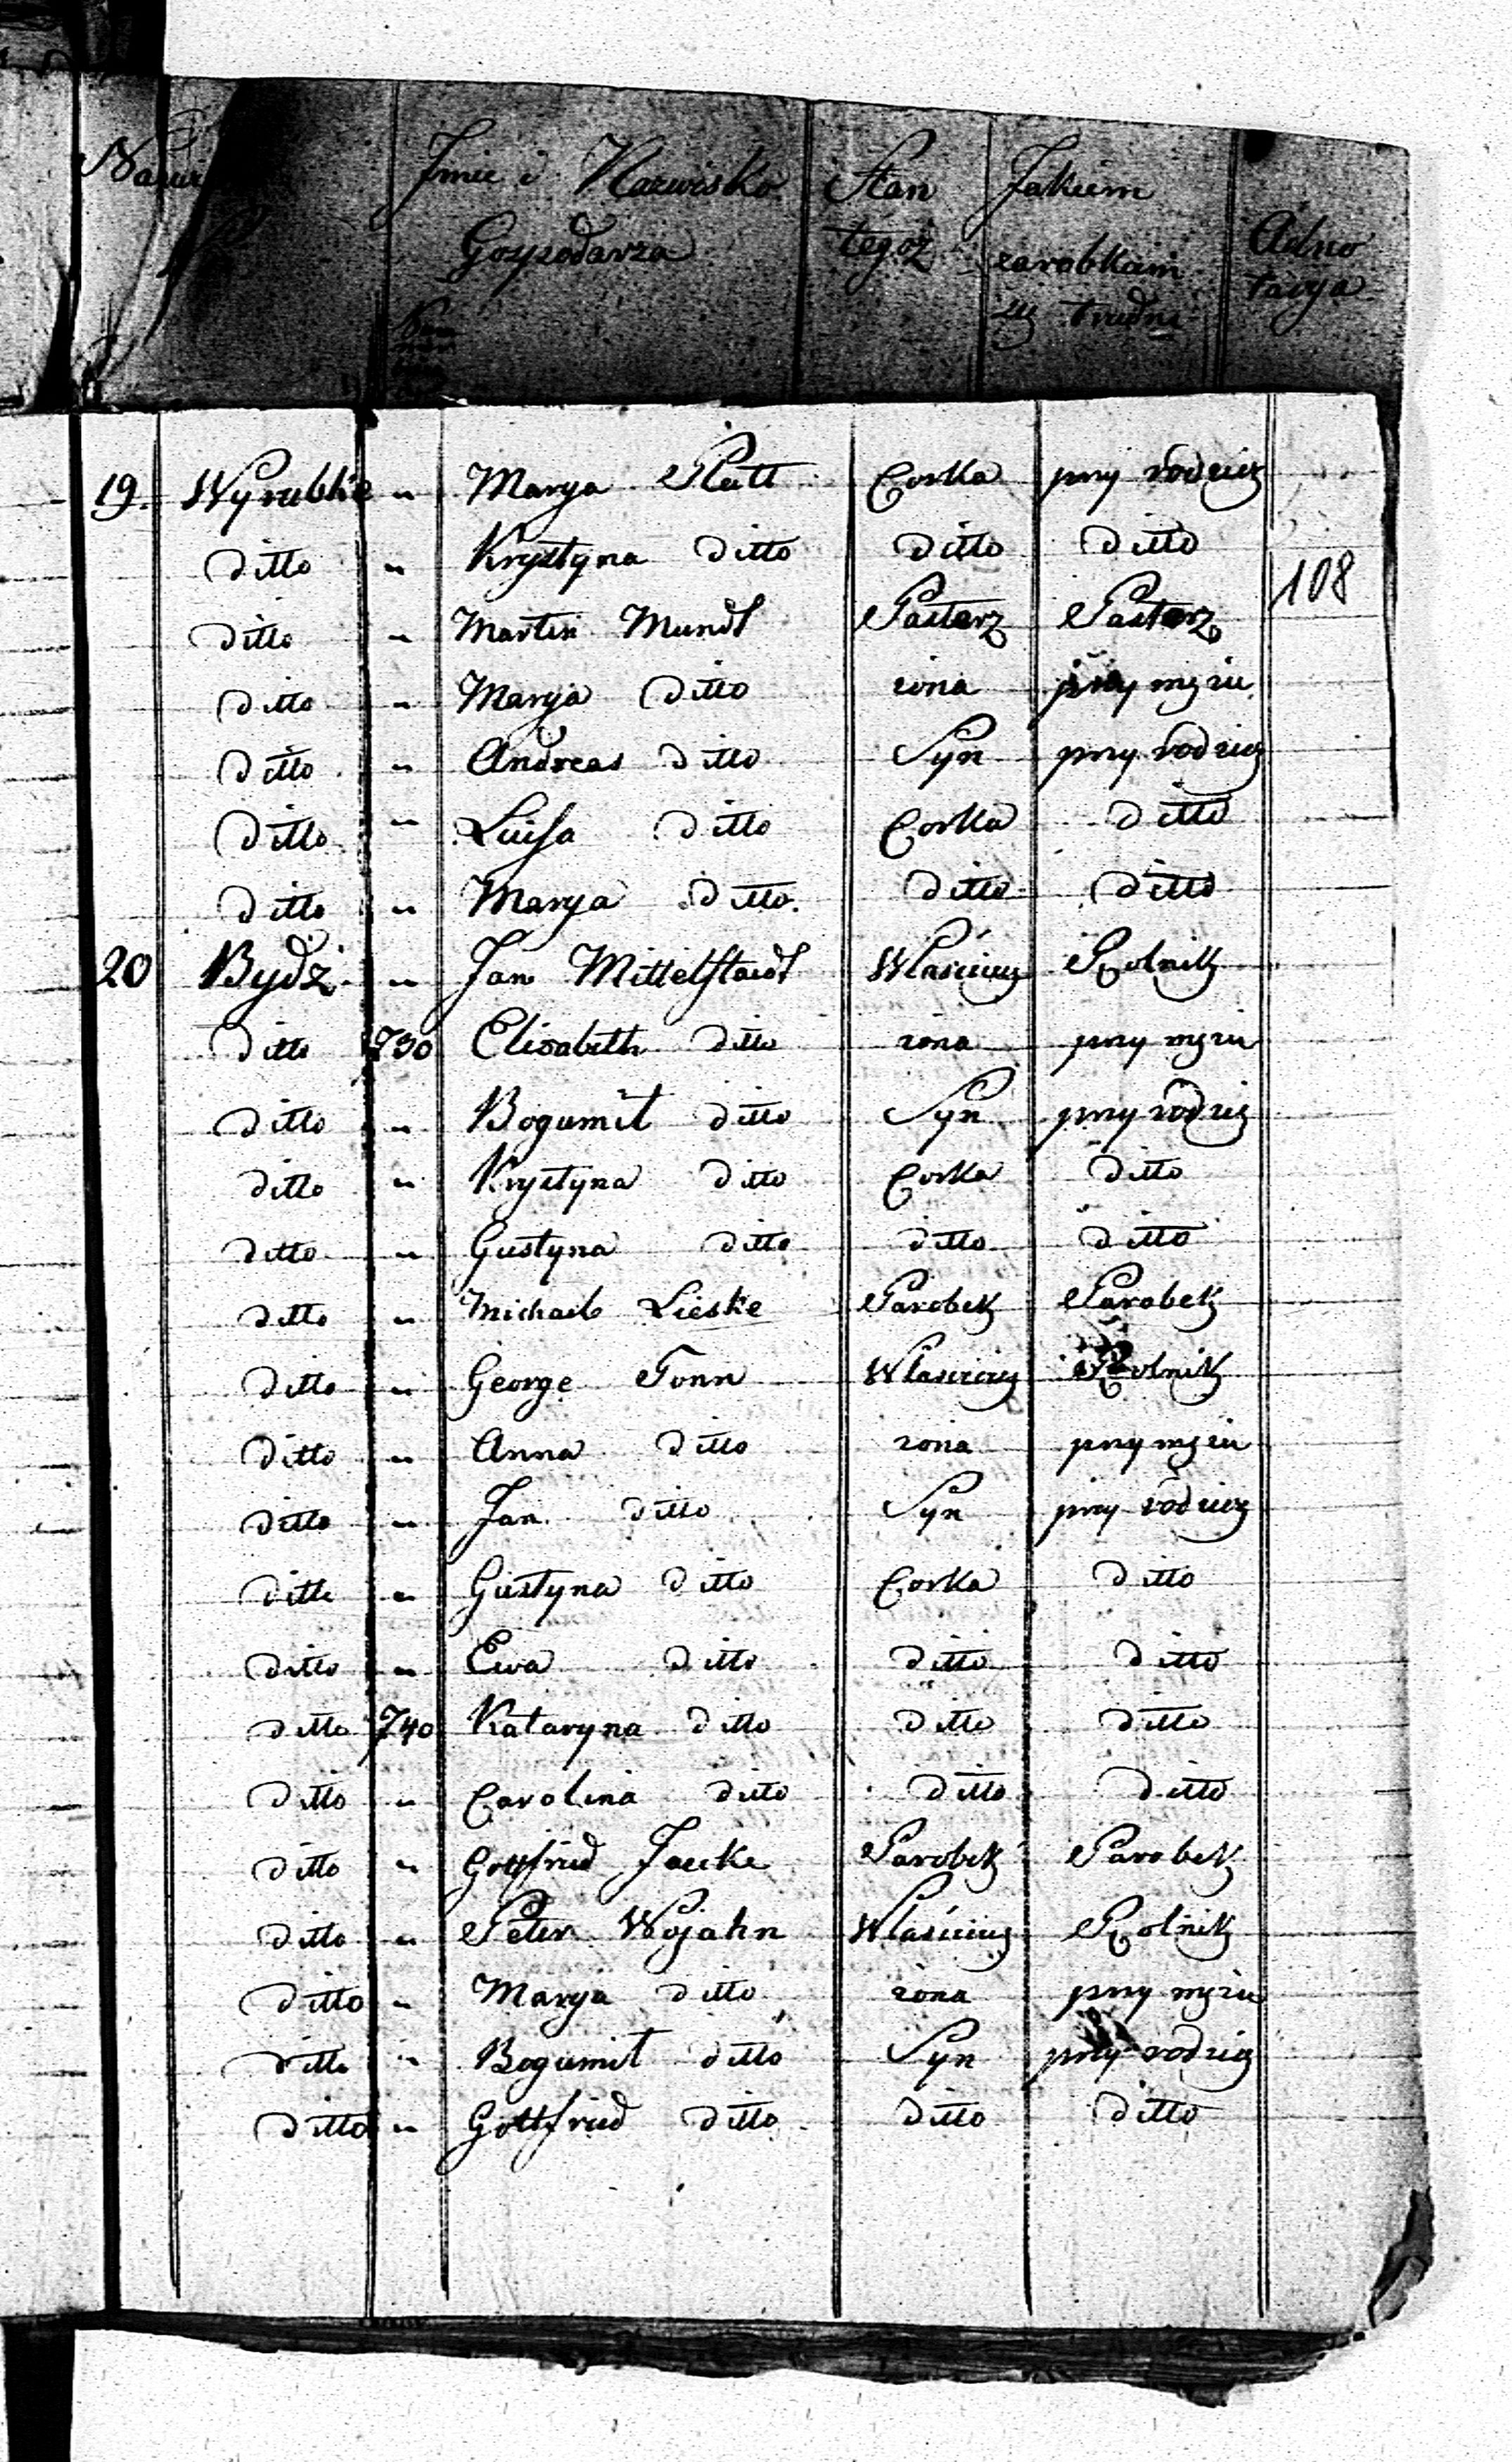 Imie i Nazwisko Gospodarza Stan tegoż Jakiem zarobkiem się trudni Adnotacya
19. Wyrubkie " Marya Platt Corka przy rodzicz
ditto " Krystyna ditto ditto ditto
108
ditto " Martin Mundt Pasterz Pasterz
ditto " Marya ditto żona przy mężu
ditto " Andreas ditto Syn przy rodzicz
ditto " Luisa ditto Corka ditto
ditto " Marya ditto. ditto ditto
20 Bydż " Jan Mittelstaedt Właściciel Rolnik
ditto 730 Elisabeth ditto żona przy mężu
ditto " Bogumił ditto Syn przy rodzic
ditto " Krystyna ditto Corka ditto
ditto " Gustyna ditto ditto ditto
ditto " Michael Lieske Parobek Parobek
ditto " George Tonn Właścicie Rolnik
ditto " Anna ditto żona przy mężu
ditto " Jan ditto Syn przy rodzicz
ditto " Gustyna ditto Corka ditto
ditto " Ewa ditto ditto ditto
ditto 740 Kataryna ditto ditto ditto
ditto " Carolina ditto ditto ditto
ditto " Gottfried Jaecke Parobek Parobek
ditto " Peter Wojahn Właściciel Rolnik
ditto " Marya ditto żona przy mężu
ditto " Bogumił ditto Syn przy rodzicz
ditto " Gottfried ditto ditto ditto